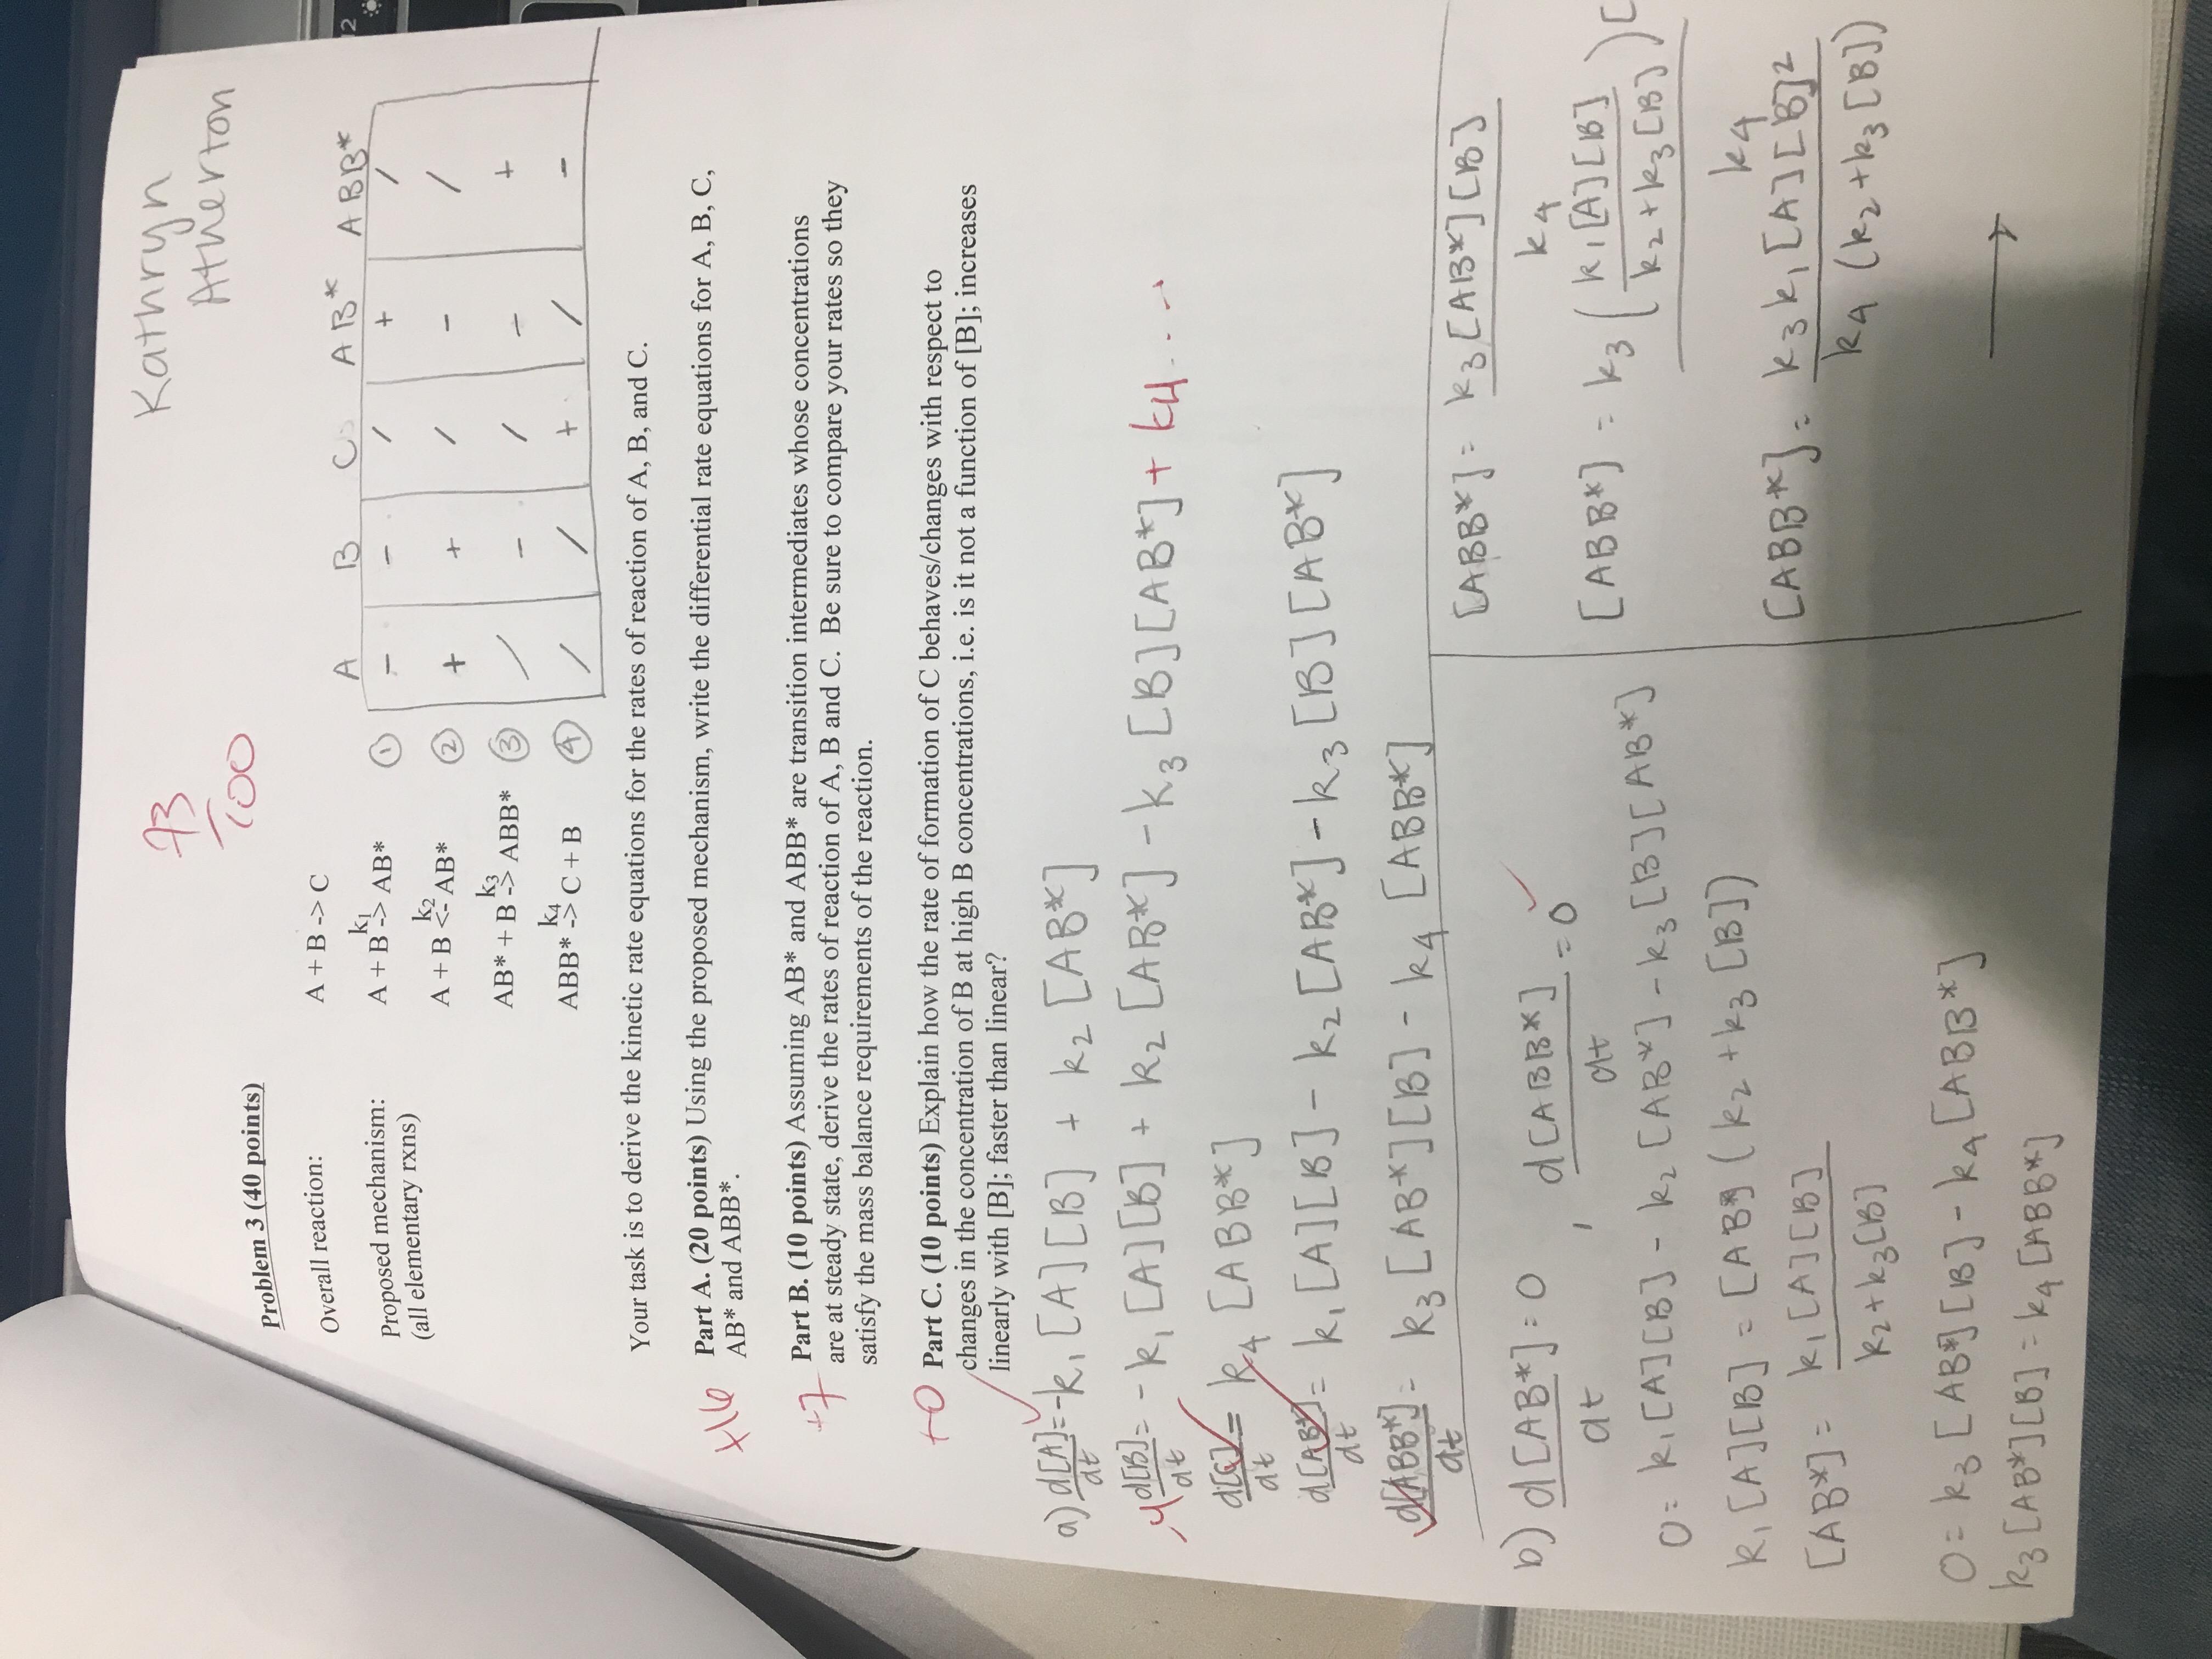 Kathryn
Atherton
73
100
Problem 3 (40 points)
Overall reaction: A + B -> C
A B C AB* ABB*
k1
Proposed mechanism: A + B -> AB* ① - - / + /
(all elementary rxns)
k2
A + B <- AB* ② + + / - /
k3
AB* + B -> ABB* ③ / - / - +
k4
ABB* -> C + B ④ / / + / -
Your task is to derive the kinetic rate equations for the rates of reaction of A, B, and C.
+16
Part A. (20 points) Using the proposed mechanism, write the differential rate equations for A, B, C,
AB* and ABB*.
+7
Part B. (10 points) Assuming AB* and ABB* are transition intermediates whose concentrations
are at steady state, derive the rates of reaction of A, B and C. Be sure to compare your rates so they
satisfy the mass balance requirements of the reaction.
+0
Part C. (10 points) Explain how the rate of formation of C behaves/changes with respect to
changes in the concentration of B at high B concentrations, i.e. is it not a function of [B]; increases
linearly with [B]; faster than linear?
a) d[A]/dt = -k1 [A][B] + k2 [AB*]
-4 d[B]/dt = -k1 [A][B] + k2 [AB*] - k3 [B][AB*] + k4....
d[C]/dt = k4 [ABB*]
d[AB*]/dt = k1 [A][B] - k2 [AB*] - k3 [B][AB*]
d[ABB*]/dt = k3 [AB*][B] - k4 [ABB*]
b) d[AB*]/dt = 0 , d[ABB*]/dt = 0
0 = k1 [A][B] - k2 [AB*] - k3 [B][AB*]
k1 [A][B] = [AB*] (k2 + k3 [B])
[AB*] = k1 [A][B] / k2 + k3 [B]
0 = k3 [AB*][B] - k4 [ABB*]
k3 [AB*][B] = k4 [ABB*]
[ABB*] = k3 [AB*][B] / k4
[ABB*] = k3 (k1 [A][B] / k2 + k3 [B]) [ / k4
[ABB*] = k3 k1 [A][B]² / k4 (k2 + k3 [B])
→